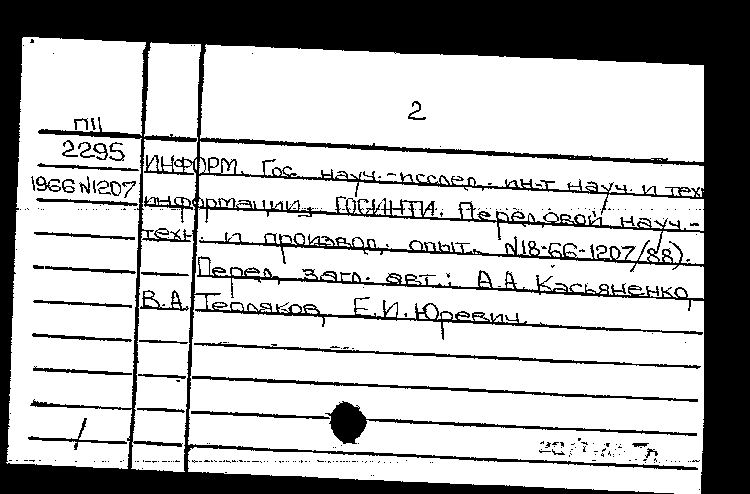 2
П11
2295
1966 N1207
ИНФОРМ. Гос. науч.-исслед. ин-т науч. и техн
информации. ГОСИНТИ. Передовой науч.-
техн. и производ. опыт. N18-66-1207/88).
Перед загл. авт.: А.А. Касьяненко,
В.А. Тепляков, Е.И. Юревич.